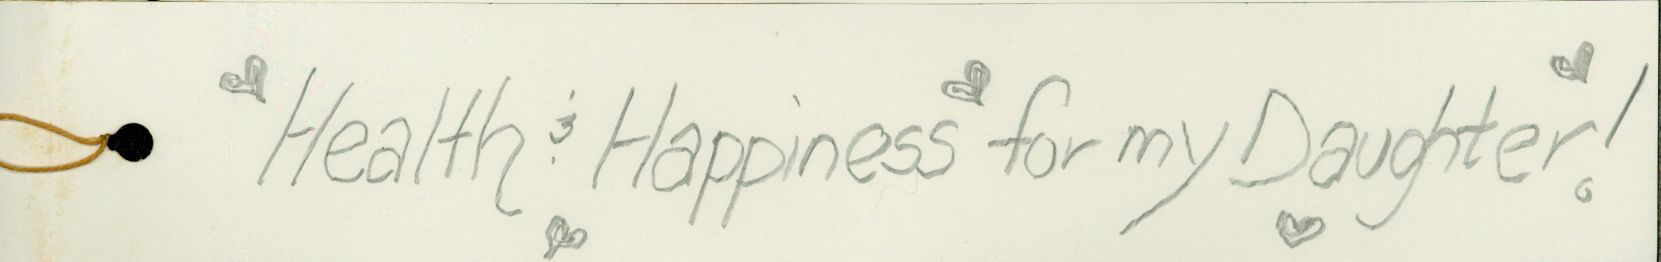 Health & Happiness for my Daughter!